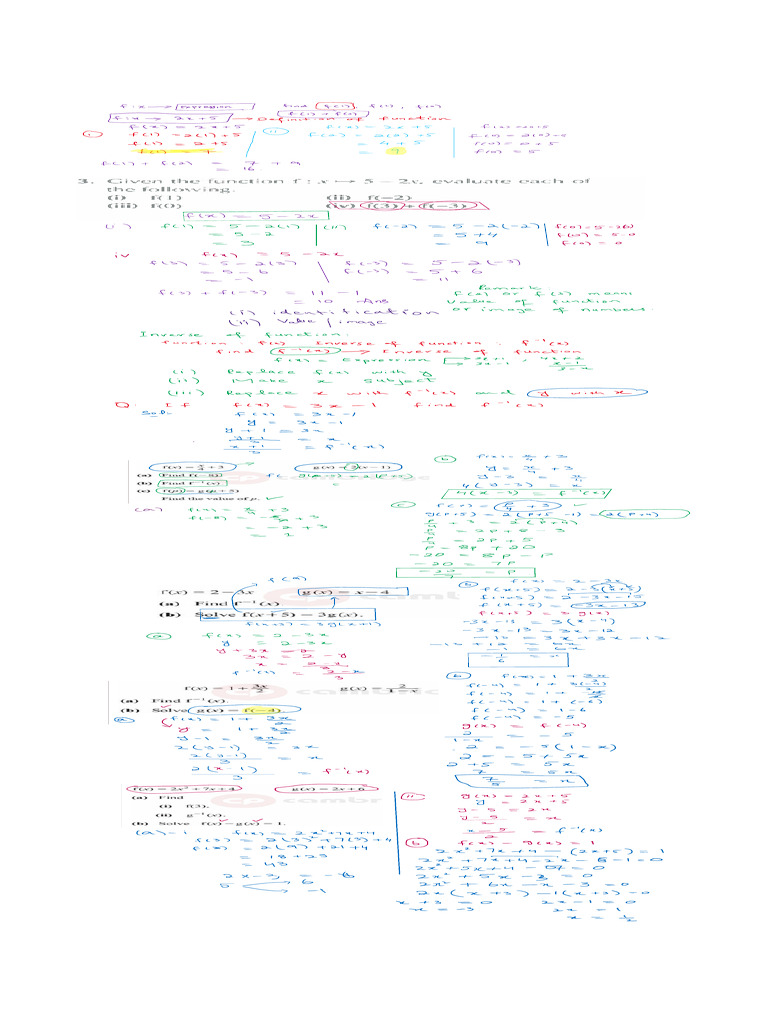 f : x → expression find f(1), f(2), f(0)
f : x → 2x + 5 → Definition of function
f(1) + f(2)
(i) f(x) = 2x + 5
f(1) = 2(1) + 5
f(1) = 2 + 5
f(1) = 7
(ii) f(x) = 2x + 5
f(2) = 2(2) + 5
= 4 + 5
= 9
f(0) = 0 + 5
f(0) = 5
f(1) + f(2) = 7 + 9
= 16
3. Given the function f : x ↦ 5 − 2x, evaluate each of
the following.
(i) f(1) (ii) f(−2)
(iii) f(0) (iv) f(3) + f(−3)
f(x) = 5 - 2x
f(1) = 5 - 2(1)
= 5 - 2
= 3
(ii) f(-2) = 5 - 2(-2)
= 5 + 4
= 9
f(0) = 5 - 0
iv f(x) = 5 - 2x
f(3) = 5 - 2(3)
= 5 - 6
= -1
f(-3) = 5 - 2(-3)
f(-3) = 5 + 6
= 11
f(3) + f(-3) = 11 - 1
= 10 Ans
Remark
f(2) or f(3) means
value of function
or image of numbers.
(i) identification
(ii) value/image
Inverse of function:
function : f(x) Inverse of function : f⁻¹(x)
find f⁻¹(x) → Inverse of function
f(x) = Expression
(i) Replace f(x) with y
(ii) Make x subject
(iii) Replace x with f⁻¹(x) and y with x
Q: If f(x) = 3x - 1 find f⁻¹(x)
Sol: f(x) = 3x - 1
y = 3x - 1
y + 1 = 3x
y+1/3 = x
x+1/3 = f⁻¹(x)
f(x) = x/4 + 3 g(x) = 2(x − 1)
(a) Find f(−8)
(b) Find f⁻¹(x).
(c) f(p) = g(p + 5)
Find the value of p.
(a) f(x) = x/4 + 3
f(-8) = -8/4 + 3
= -2 + 3
(b) f(x) = x/4 + 3
y = x/4 + 3
y - 3 = x/4
4(y - 3) = x
4(x - 3) = f⁻¹(x)
(c) f(p) = p/4 + 3
g(p+5) = 2(p+5-1) = 2(p+4)
+ 3 = 2(p+4)
-20 = 8p - p
-20 = 7p
-20/7 = p
f(x) = 2 − 3x g(x) = x − 4
(a) Find f⁻¹(x)
(b) Solve f(x + 5) = 3g(x).
(a) f(x) = 2 - 3x
y = 2 - 3x
y + 3x = 2
3x = 2 - y
x = 2-y/3
f⁻¹(x) = 2-x/3
(b) f(x) = 2 - 3x
f(x+5) = 2 - 3(x+5)
f(x+5) = 2 - 3x - 15
f(x+5) = -3x - 13
f(x+5) = 3g(x)
-3x - 13 = 3(x-4)
-3x - 13 = 3x - 12
-13 = 3x + 3x - 12
-13 + 12 = 6x
-1/6 = x
f(x) = 1 + 3x/2 g(x) = 2/1−x
(a) Find f⁻¹(x).
(b) Solve g(x) = f(−4).
(a) f(x) = 1 + 3x/2
y = 1 + 3x/2
y - 1 = 3x/2
2(y-1) = 3x
2(y-1)/3 = x
2(x-1)/3 = f⁻¹(x)
(b) f(x) = 1 + 3x/2
f(-4) = 1 + 3(-4)/2
f(-4) = 1 + (-6)
f(-4) = 1 - 6
f(-4) = -5
g(x) = f(-4)
2/1-x = -5
2 = -5(1-x)
2 = -5 + 5x
2 + 5 = 5x
7 = 5x
7/5 = x
f(x) = 2x² + 7x + 4 g(x) = 2x + 6
(a) Find
(i) f(3).
(ii) g⁻¹(x).
(b) Solve f(x) − g(x) = 1.
(a) - i f(x) = 2x² + 7x + 4
f(3) = 2(3)² + 7(3) + 4
= 2(9) + 21 + 4
= 18 + 25
= 43
6
-1
(ii) g(x) = 2x + 5
y = 2x + 5
y - 5 = 2x
y-5/2 = x
x-5/2 = f⁻¹(x)
(b) f(x) - g(x) = 1
2x² + 7x + 4 - (2x + 5) = 1
2x² + 5x - 3 = 0
2x² + 6x - x - 3 = 0
2x(x+3) -1(x+3) = 0
x + 3 = 0 2x - 1 = 0
x = -3 2x = 1
x = 1/2